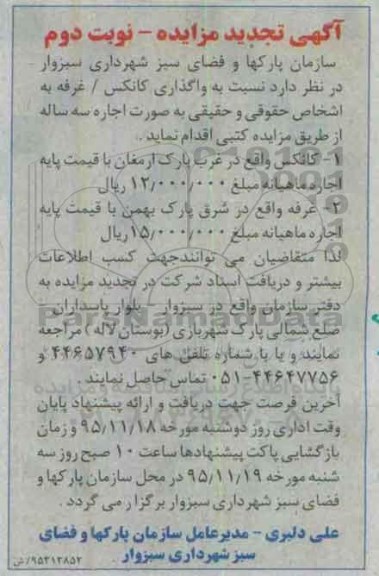 آگهی تجدید مزایده - نوبت دوم
سازمان پارکها و فضای سبز شهرداری سبزوار
در نظر دارد نسبت به واگذاری کانکس / غرفه به
اشخاص حقوقی و حقیقی به صورت اجاره سه ساله
از طریق مزایده کتبی اقدام نماید.
۱- کانکس واقع در غرب پارک ارمغان با قیمت پایه
اجاره ماهیانه مبلغ ۱۲/۰۰۰/۰۰۰ ریال
۲- غرفه واقع در شرق پارک بهمن با قیمت پایه
اجاره ماهیانه مبلغ ۱۵/۰۰۰/۰۰۰ ریال
لذا متقاضیان می توانندجهت کسب اطلاعات
بیشتر و دریافت اسناد شرکت در تجدید مزایده به
دفتر سازمان واقع در سبزوار - بلوار پاسداران -
ضلع شمالی پارک شهربازی (بوستان لاله) مراجعه
نمایند و یا با شماره تلفن های ۴۴۶۵۷۹۴۰ و
۰۵۱-۴۴۶۴۷۷۵۶ تماس حاصل نمایند.
آخرین فرصت جهت دریافت و ارائه پیشنهاد پایان
وقت اداری روز دوشنبه مورخه ۹۵/۱۱/۱۸ و زمان
بازگشایی پاکت پیشنهادها ساعت ۱۰ صبح روز سه
شنبه مورخه ۹۵/۱۱/۱۹ در محل سازمان پارکها و
فضای سبز شهرداری سبزوار برگزار می گردد.
علی دلبری - مدیرعامل سازمان پارکها و فضای
سبز شهرداری سبزوار
۹۵۲۱۲۸۵۲/ش
ParsNamadData